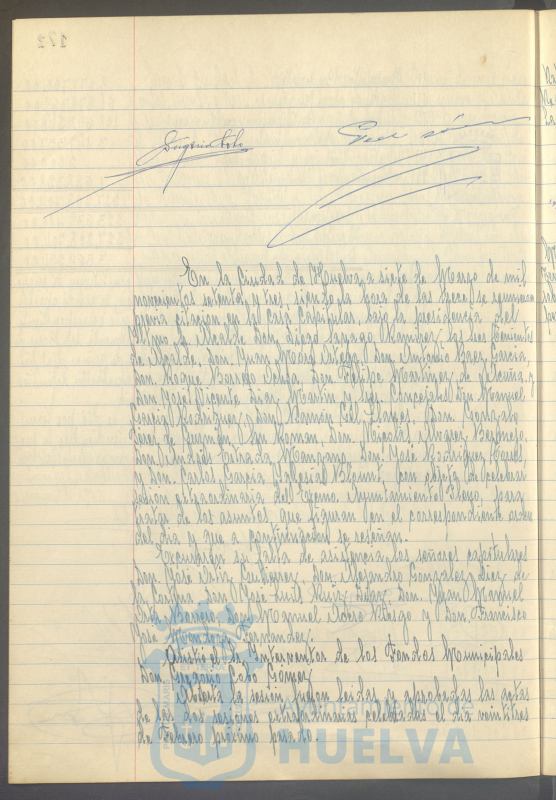 172
En la Ciudad de Huelva, a siete de Marzo de mil
novecientos setenta y tres, siendo la hora de las trece, se reunieron
previa citacion, en la Casa Capitular, bajo la presidencia del
Iltmo. Sr. Alcalde Don Diego Sayago Ramirez, los Sres Tenientes
de Alcalde, Don Juan Ortega, Don Antonio Baez Garcia,
Don Roque Barrego Ochoa, Don Felipe Martinez de Acuña, y
Don José Vicente Diaz Martin y Sres. Concejales Don Manuel
Garcia Rodriguez, Don Ramón Cil Llanes, Don Gonzalo
Perez de Guzman San Roman, Don Nicolás Alvarez Bermejo,
Don Andrés Estrada Manzano, Don José Rodriguez
y Don Carlos Garcia Blount, con objeto de celebrar
sesion extraordinaria del Excmo. Ayuntamiento Pleno, para
tratar de los asuntos que figuran en el correspondiente orden
del dia y que a continuacion se reseñan.
Excusaron su falta de asistencia los señores capitulares
Don José Gutierrez, Don Alejandro Gonzalez Diez de
la Cortina, Don José Luis Ruiz Diaz, Don Juan Manuel
Borrero, Don Manuel Otero Riesgo y Don Francisco
José Mendoza Fernandez.
Asistió el Sr. Interventor de los Fondos Municipales
Don Gregorio Lobo Gomez.
Abierta la sesion, fueron leidas y aprobadas las actas
de las dos sesiones extraordinarias celebradas el dia veintitres
de Febrero próximo pasado.
Ayuntamiento de
HUELVA